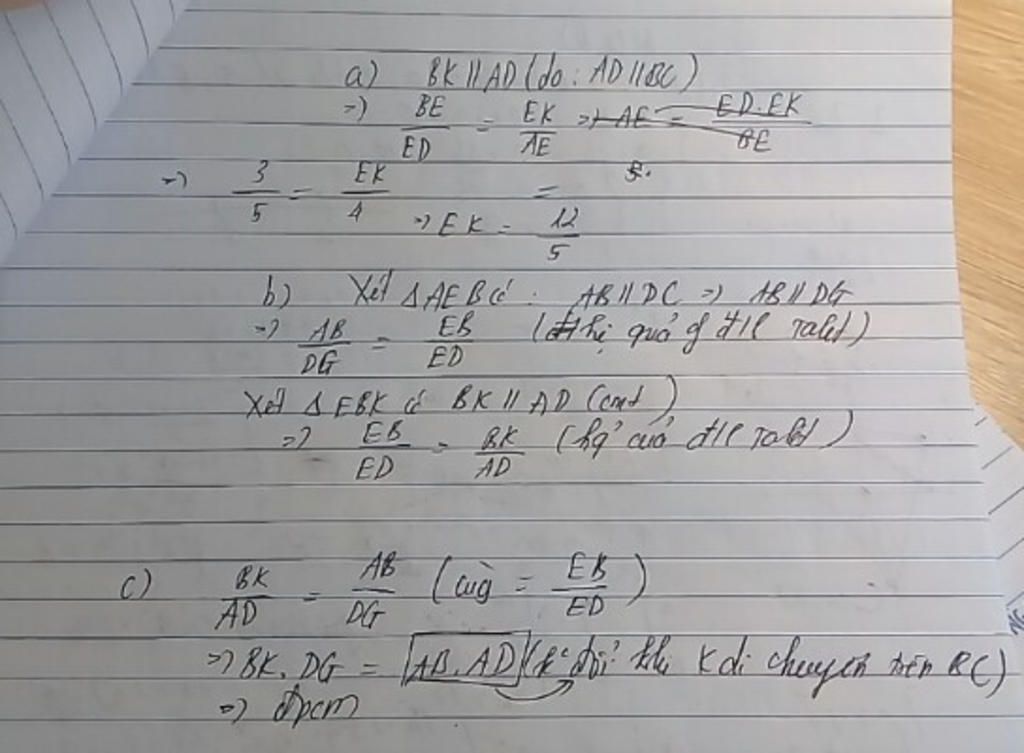 a) BK // AD (do : AD // BC)
=) BE/ED = EK/AE =) AE = ED.EK/BE
=) 3/5 = EK/4 = 5.
=) EK = 12/5
b) Xét Δ AEB có : AB // DC =) AB // DG
=) AB/DG = EB/ED (hệ quả of đ/l Talet)
Xét Δ EBK có BK // AD (cmt)
=) EB/ED = BK/AD (hq của đ/l Talet)
c) BK/AD = AB/DG (cùg = EB/ED)
=) BK.DG = AB.AD (k° đổi khi K di chuyển trên BC)
=) đpcm